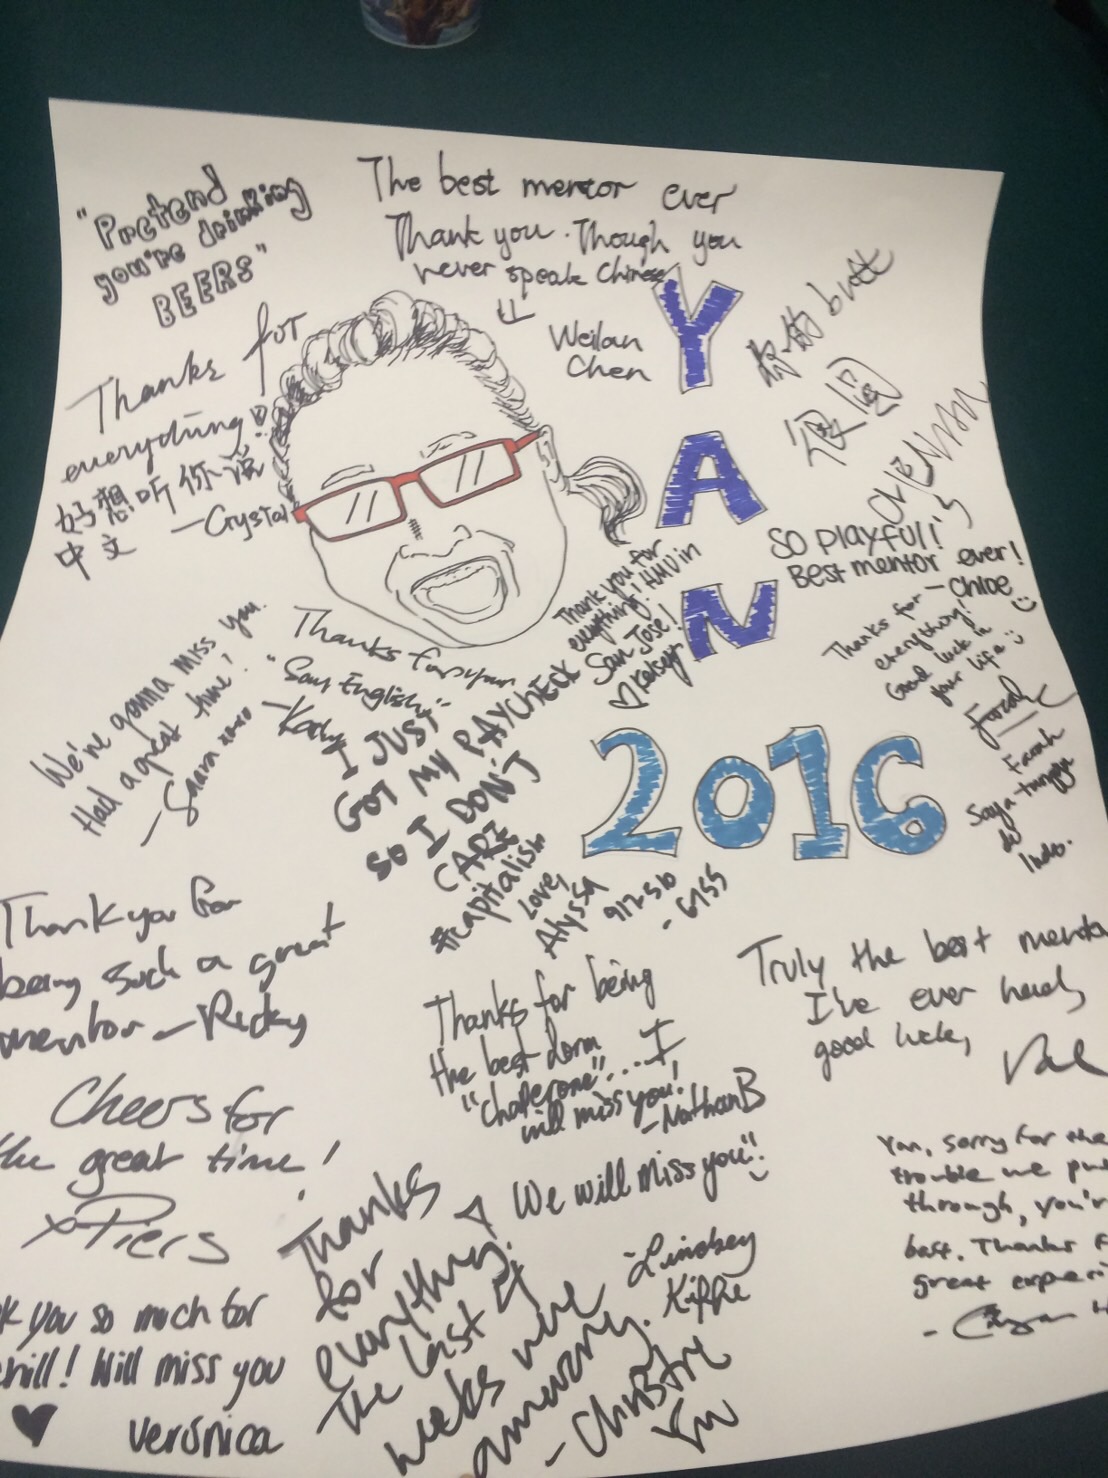 "Pretend
you're drinking
BEERS"
The best mentor ever
Thank you. Though you
never speak Chinese
Weilan
Chen
YAN
2016
Thanks for
everything!
好想听你说
中文
-Crystal
你的butt
很
SO PLAYFUL!
Best mentor ever!
-Chloe
Thank you for
everything! HMU in
San Jose!
Kelsey
Thanks for
everything!
Good luck in
your life
Farah
Saya tunggu
di
Indo.
We're gonna miss you.
Had a great time!
-Saara xoxo
Thanks for your
"Say English"
-Kathy
I JUST
GOT MY PAYCHECK
SO I DON'T
CARE
#capitalism
Love,
Alyssa
912-510
-6155
Thank you for
being such a great
mentor -Ricky
Truly the best mentor
I've ever had,
good luck,
Thanks for being
the best dorm
"chaperone".... I
will miss you!
-Nathan B
Cheers for
the great time!
xPiers
We will miss you!
Lindsey
Thanks
for
everything.
The last 7
weeks were
-Christine
Yan, sorry for the
trouble we put
through, you're
best. Thanks
great experi
k you so much for
chill! Will miss you
Veronica